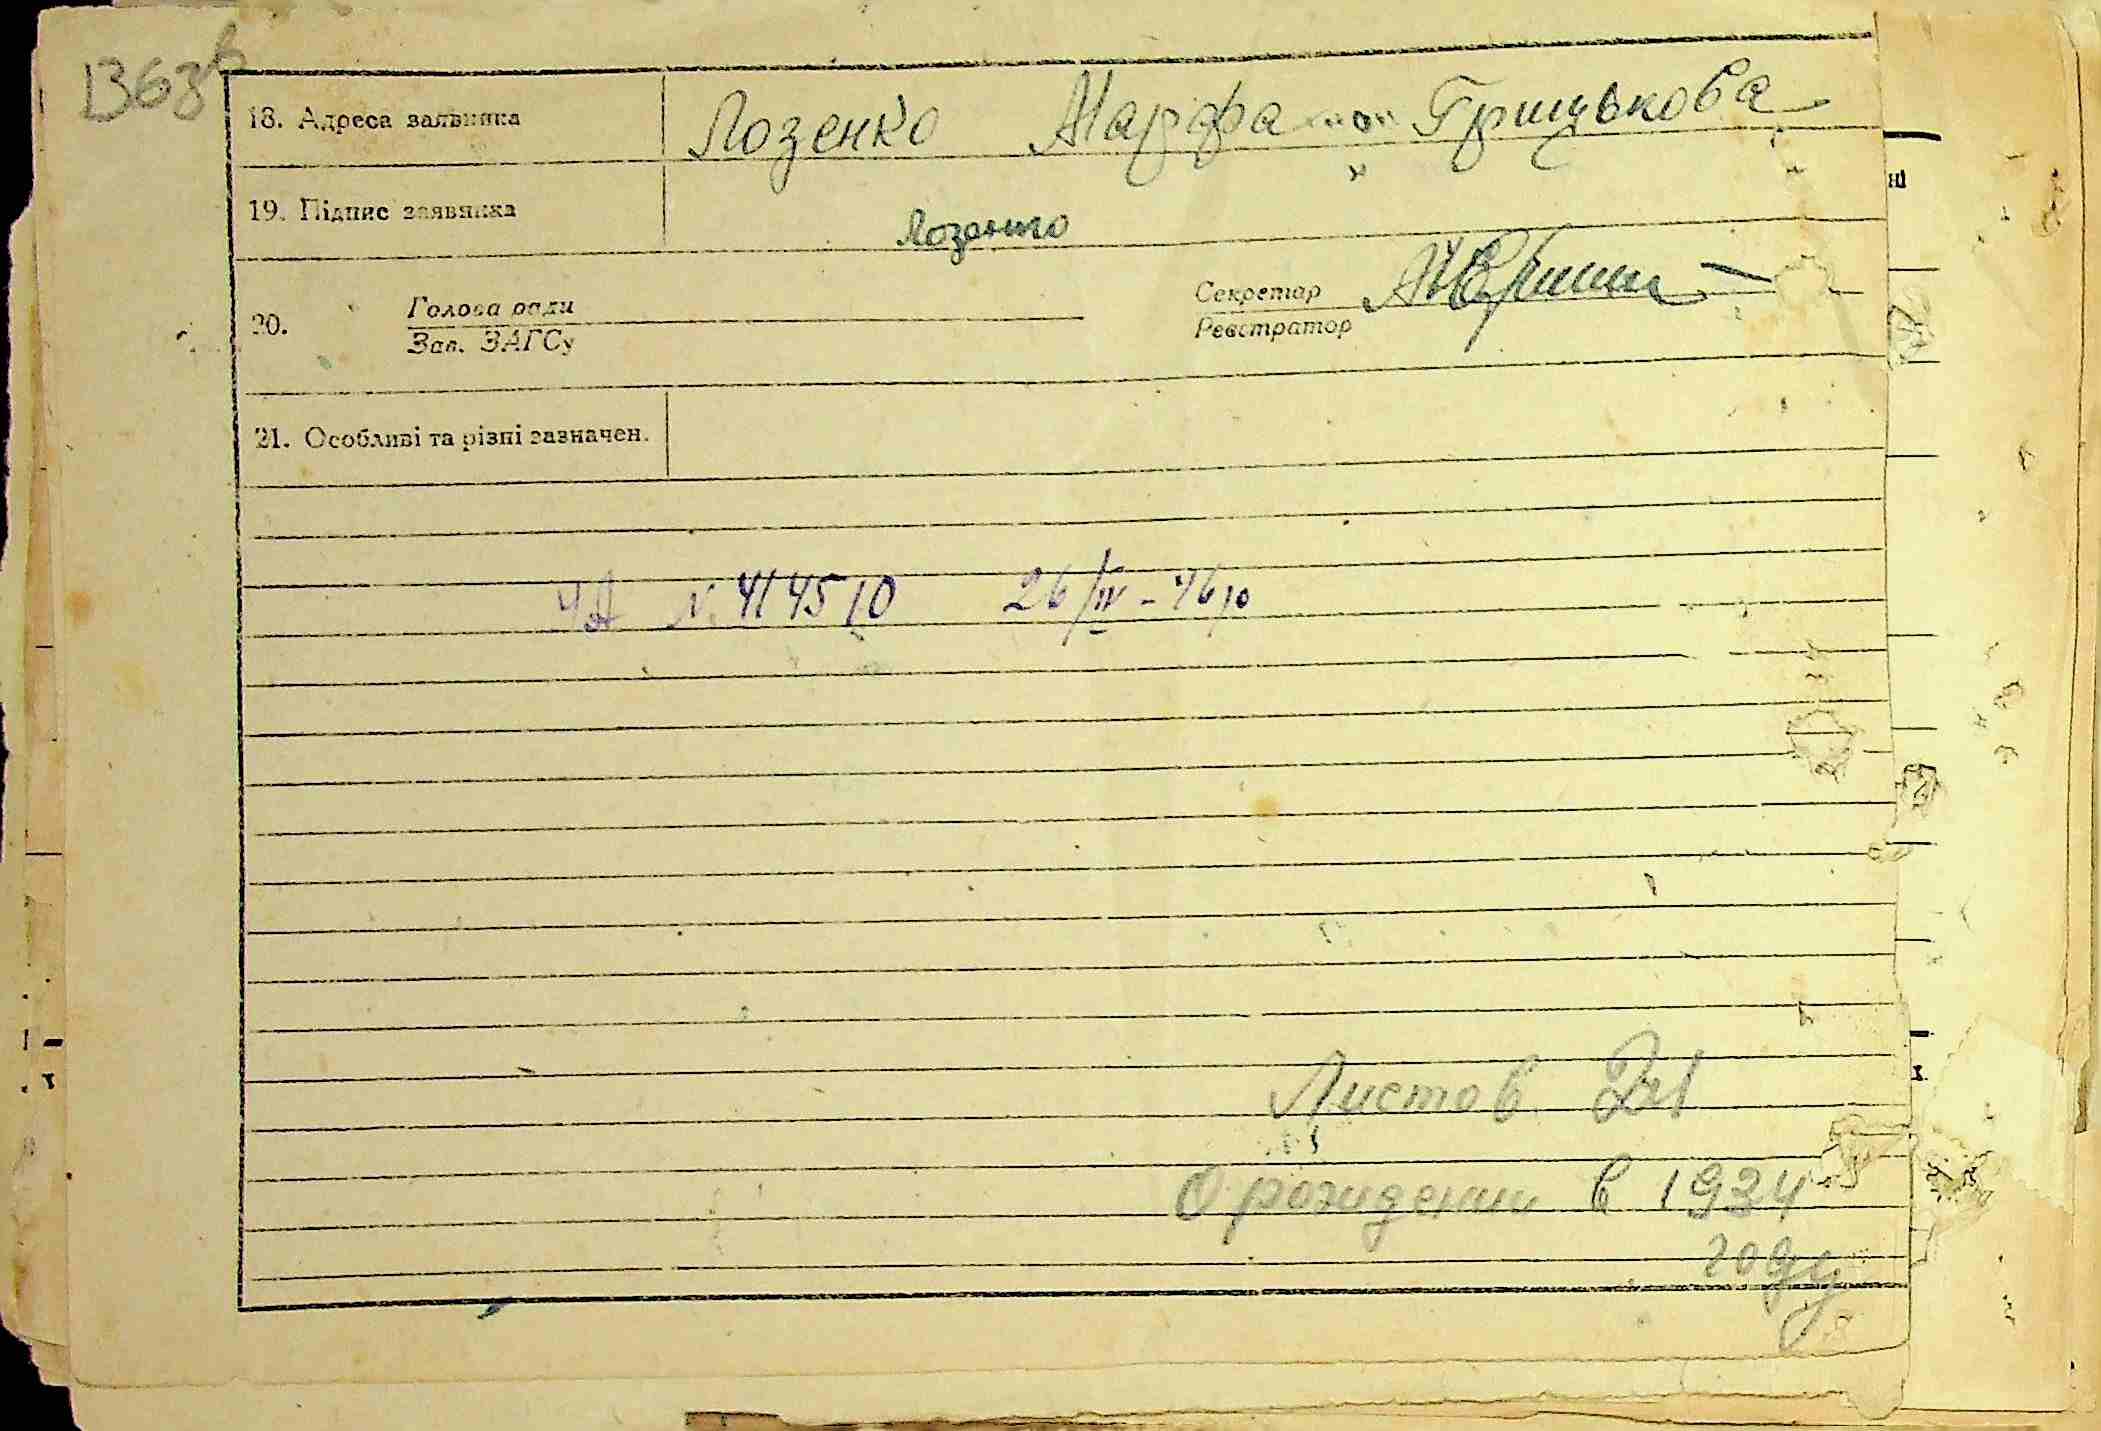 1363в
18. Адреса заявника Лозенко Марфа Грицькова
19. Підпис заявника Лозенко
20. Голова ради Секретар
Зав. ЗАГСу Реєстратор
21. Особливі та різні зазначен.
ЧА № 414510 26/IV-46 р
Листов 21
О рождении в 1934
году